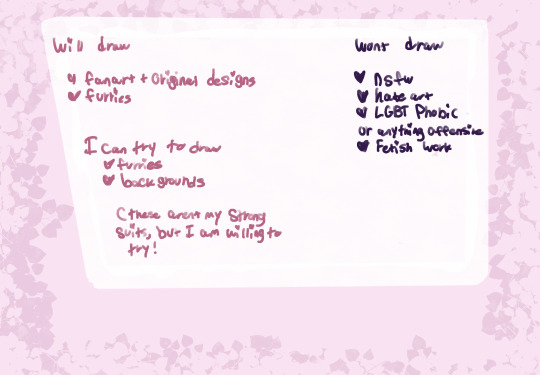 Will draw
fanart + Original designs
furries
I can try to draw
furries
backgrounds
(these arent my strong
suits, but I am willing to
try!
Wont draw
nsfw
hate art
LGBT Phobic
or anything offensive
Fetish work